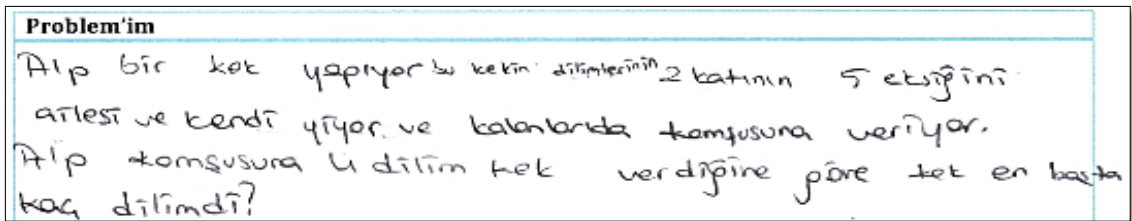 Problem'im
Alp bir kek yapıyor bu kekin dilimlerinin 2 katının 5 eksiğini
ailesi ve kendi yiyor ve kalanlarıda komşusuna veriyor.
Alp komşusuna 4 dilim kek verdiğine göre kek en başta
kaç dilimdi?